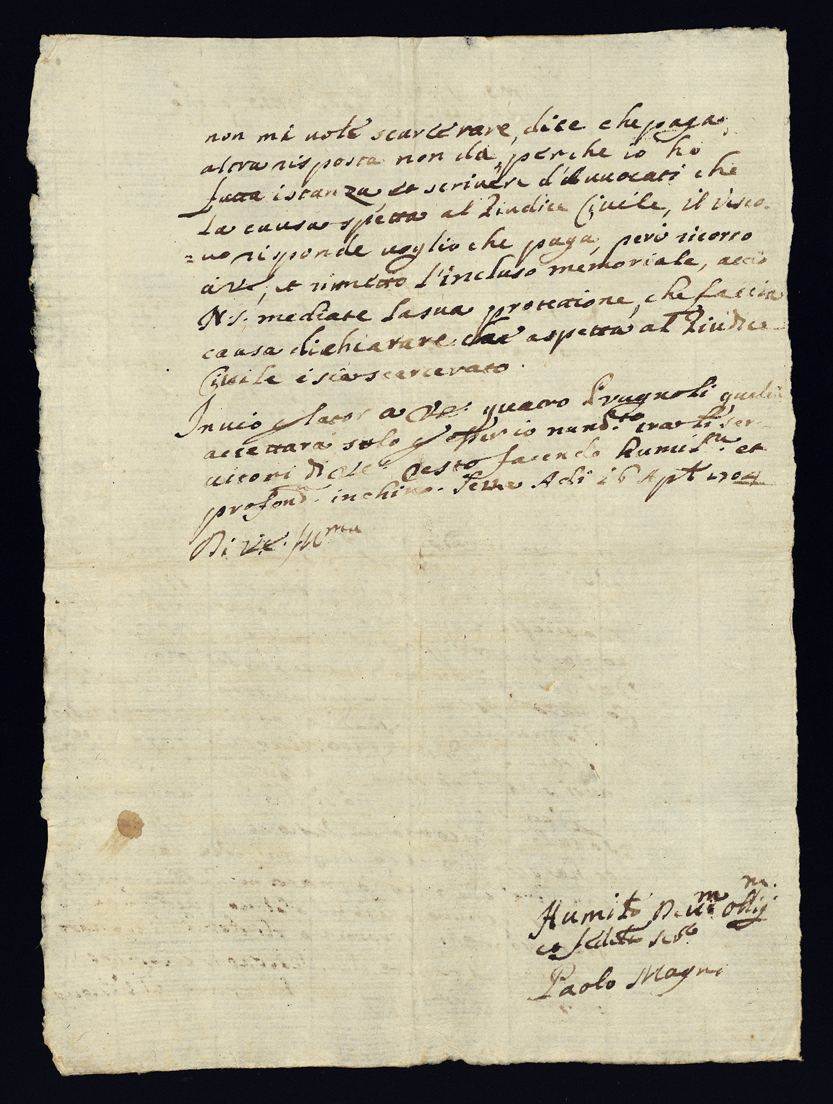 non mi vole scarcerare, dice che paga,
altra risposta non dà, perche io ho
fatta istanza et scrivere d'Avvocati che
la causa spetta al Giudice Civile, il Vesco-
=vo risponde voglio che paga, però ricorro
à VE, et rimetto l'incluso memoriale, acciò
N.S. mediate la sua protettione, che faccia
causa dichiarare che aspetta al Giudice
Civile e sia scarcerato.
Invio lator a VE. quatro Prugnoli quali
accettarà solo
vitori di VE. resto facendo humilm et
profond. inchino. Adi 16 Apl 1704
Di VE. Ill.ma
Humil.o Dev.m Obl.m
et fedel.o se.
Paolo Magni